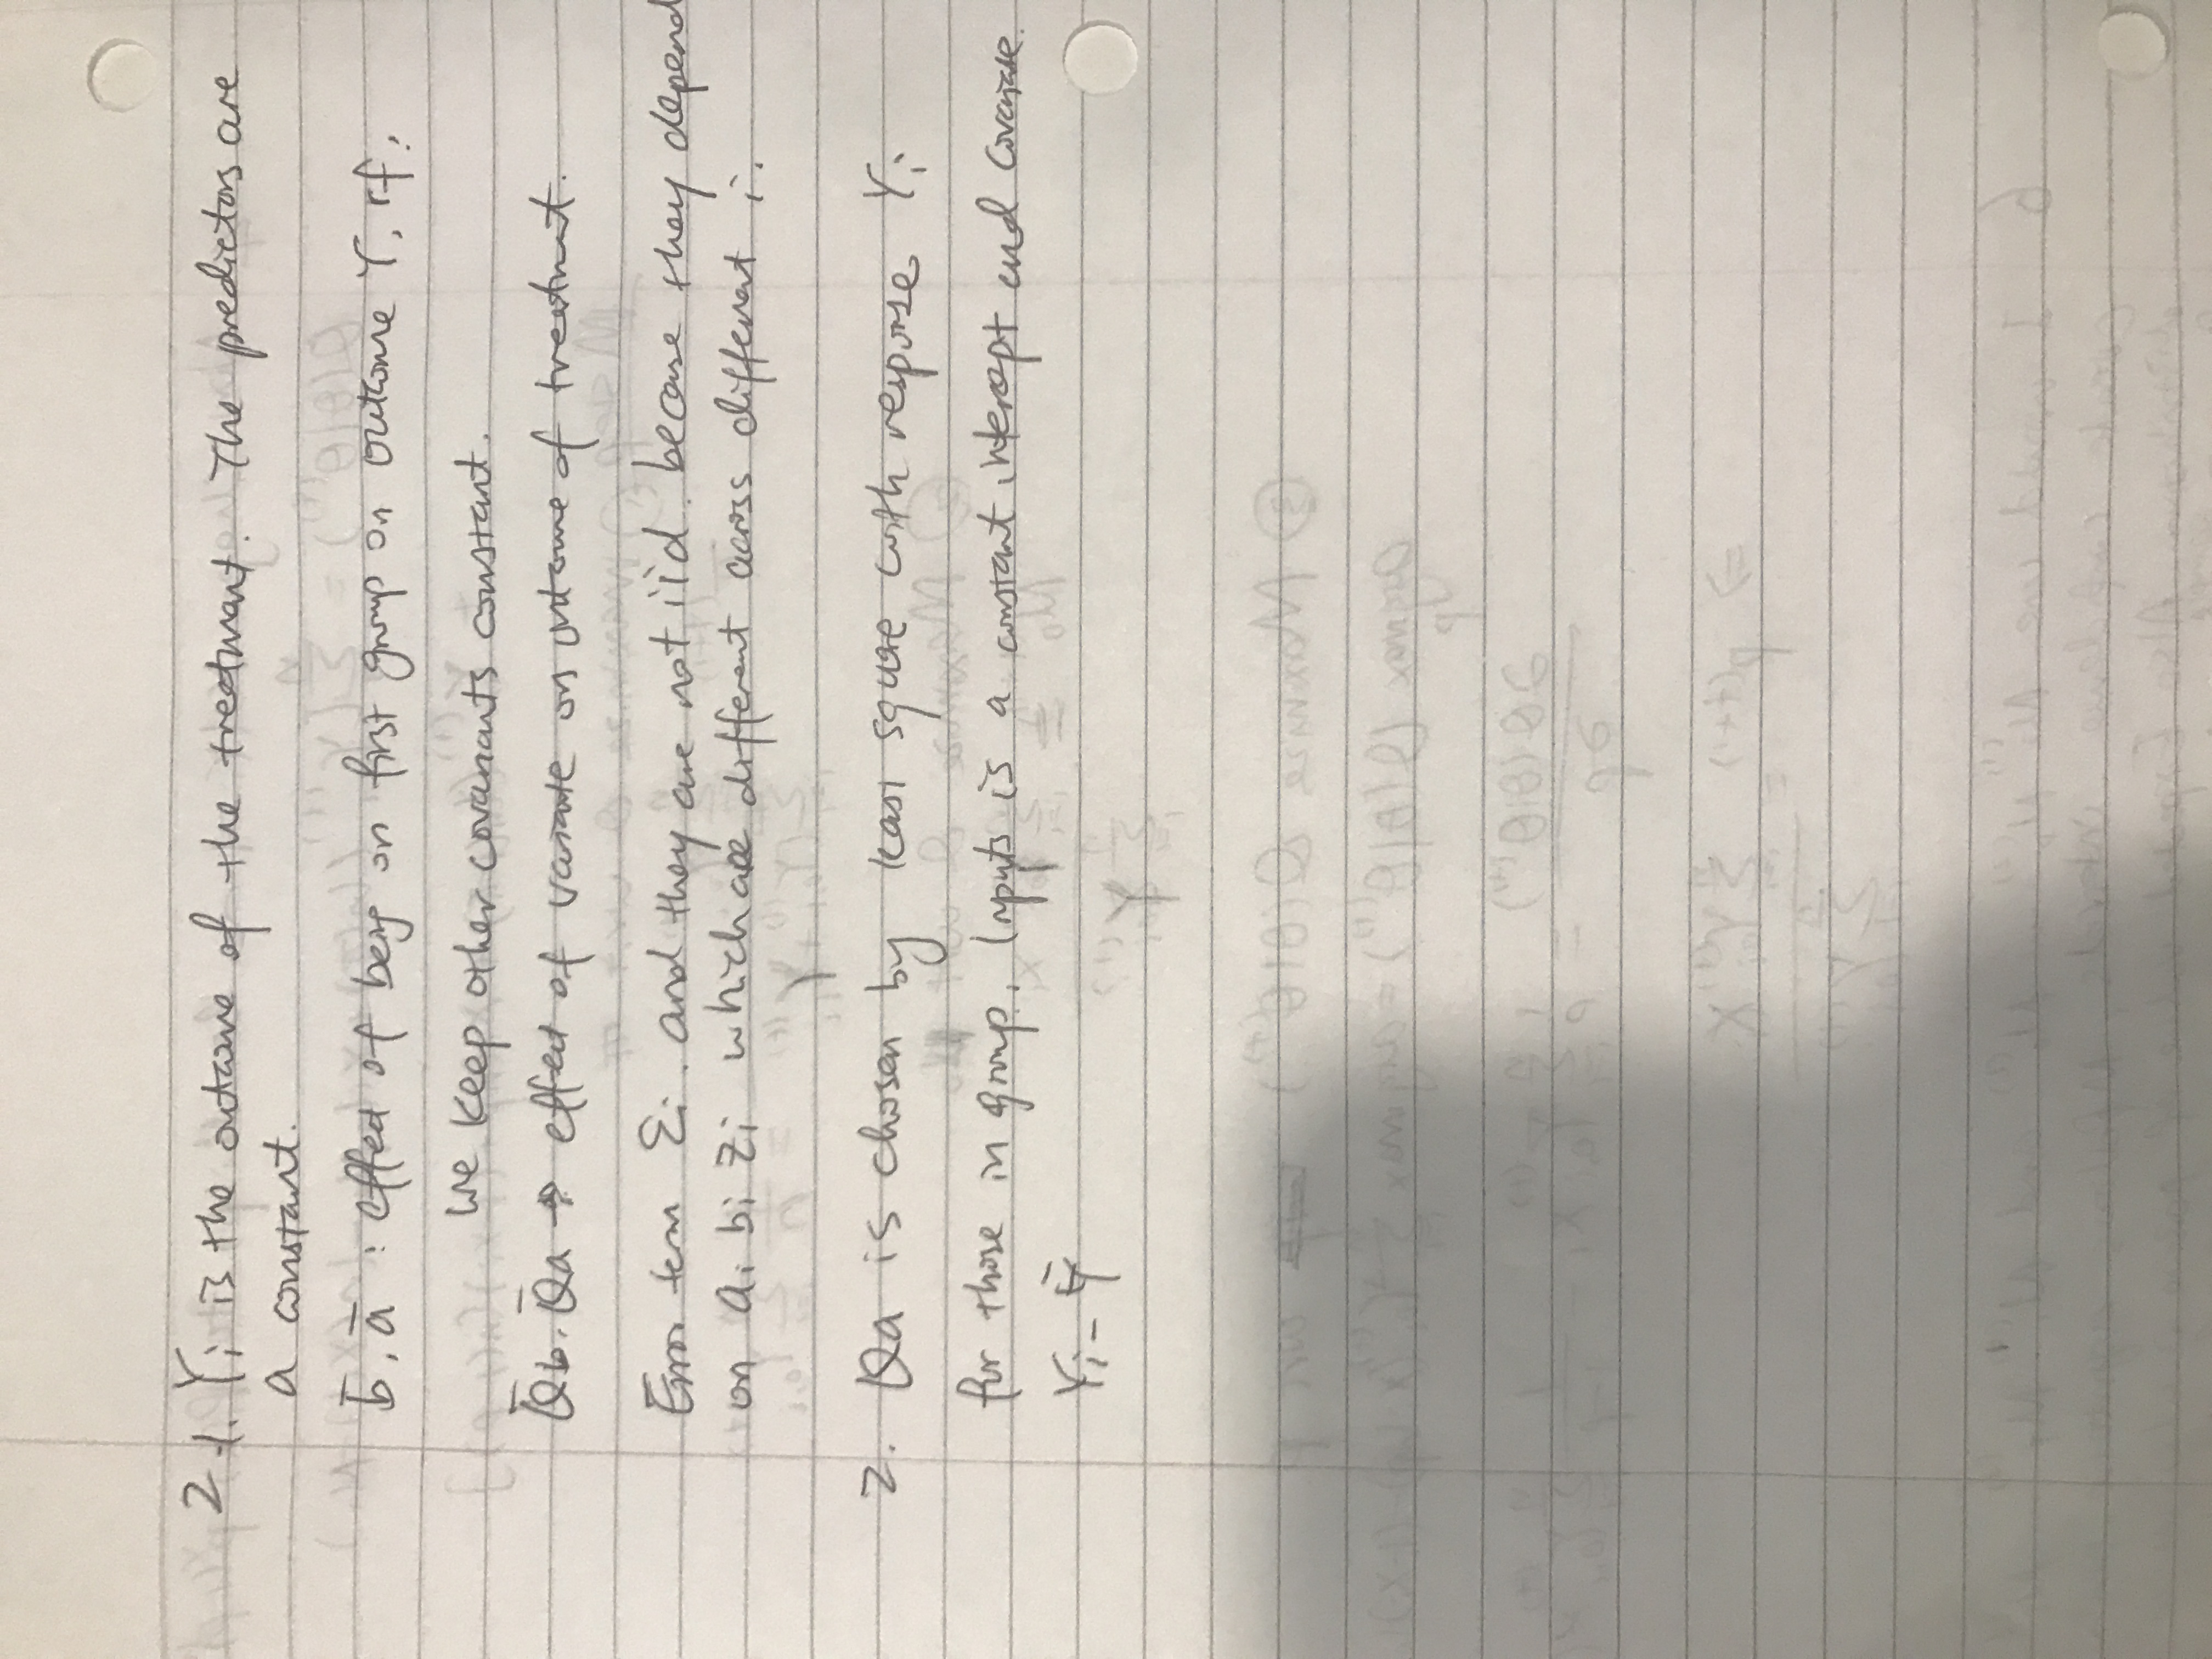 2 1. Yi is the outcome of the treatment. The predictors are
a constant.
b̄, ā : effect of being on first group on outcome Y, if,
we keep other covariants constant.
Q̄b, Q̄a → effect of variate on outcome of treatment.
Error term Σi. and they are not iid. because they depend
on ai bi zi which are different across different i.
2. Qa is chosen by least square with response Yi
for those in group. Inputs is a constant intercept and covariate.
Yi - Ȳ